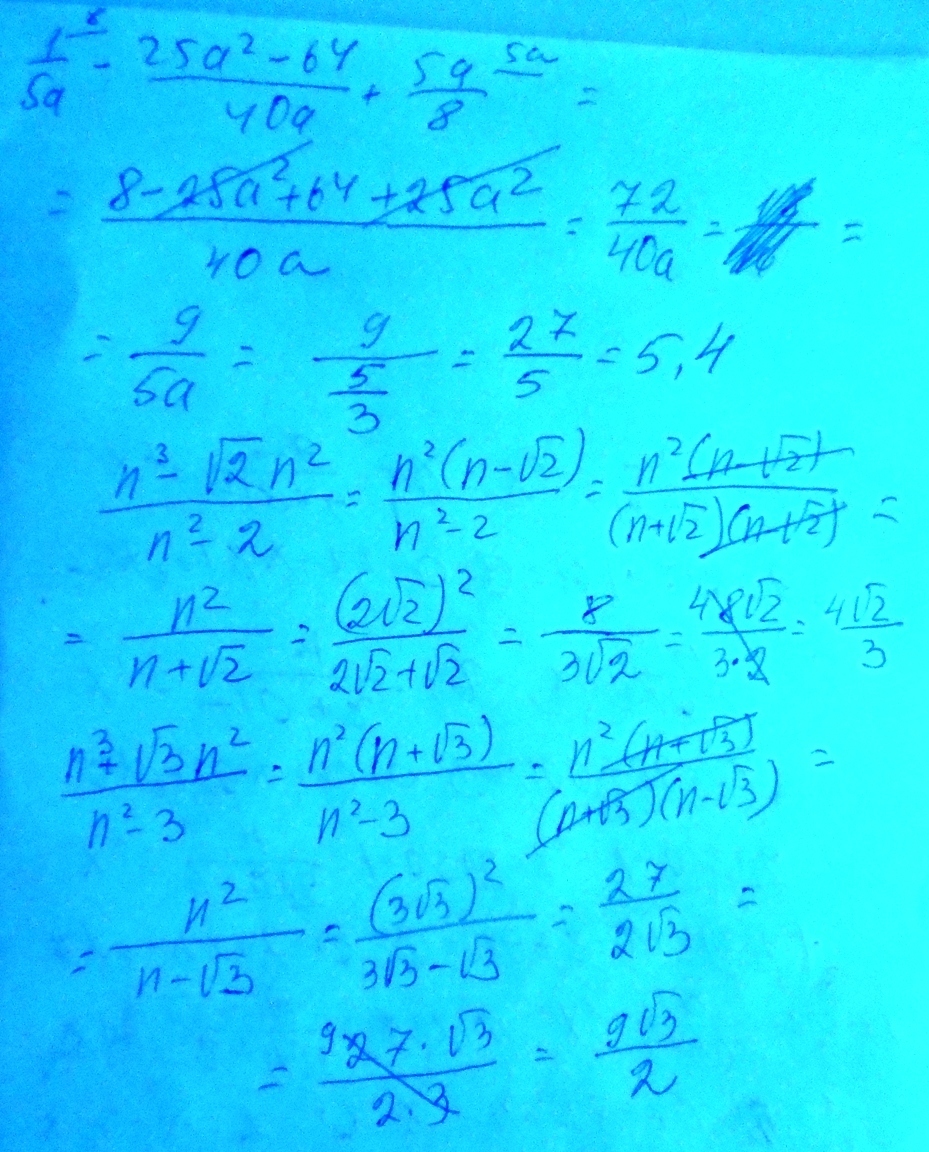 1/5a ⁸ - (25a² - 64)/40a + 5a/8 ⁵ᵃ =
= (8 - 25a² + 64 + 25a²)/40a = 72/40a = =
= 9/5a = 9/(5/3) = 27/5 = 5,4
(n³ - √2 n²)/(n² - 2) = n²(n - √2)/(n² - 2) = n²(n - √2)/((n + √2)(n - √2)) =
= n²/(n + √2) = (2√2)²/(2√2 + √2) = 8/3√2 = 4 8√2/3·2 = 4√2/3
(n³ + √3 n²)/(n² - 3) = n²(n + √3)/(n² - 3) = n²(n + √3)/((n + √3)(n - √3)) =
= n²/(n - √3) = (3√3)²/(3√3 - √3) = 27/2√3 =
= 9 27·√3/2·3 = 9√3/2